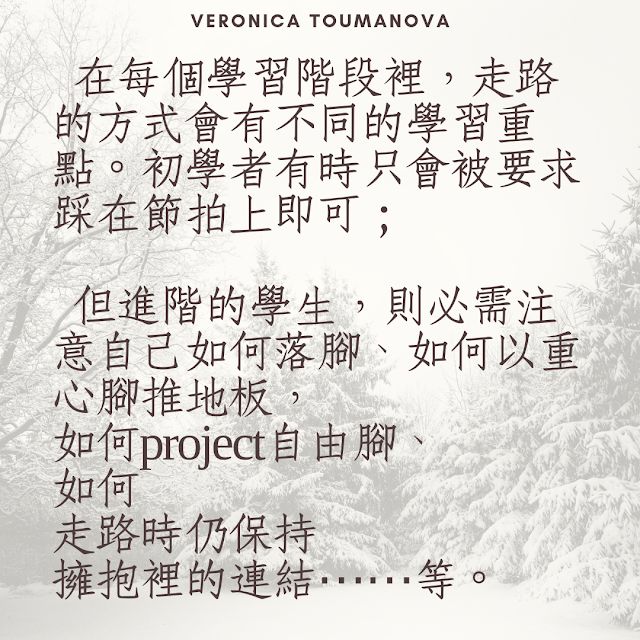 VERONICA TOUMANOVA
在每個學習階段裡，走路
的方式會有不同的學習重
點。初學者有時只會被要求
踩在節拍上即可；
但進階的學生，則必需注
意自己如何落腳、如何以重
心腳推地板，
如何project自由腳、
如何
走路時仍保持
擁抱裡的連結⋯⋯等。